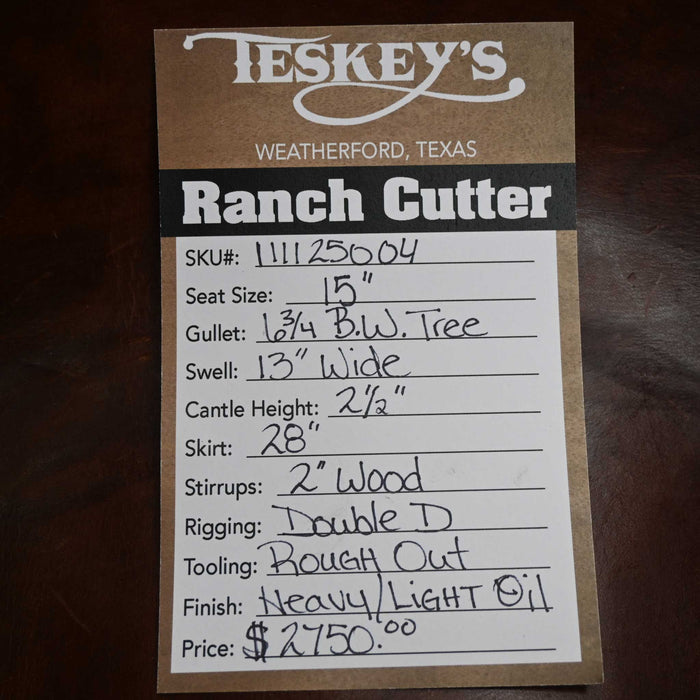 TESKEY'S
WEATHERFORD, TEXAS
Ranch Cutter
SKU#: 111125004
Seat Size: 15"
Gullet: 6 3/4 B.W. Tree
Swell: 13" Wide
Cantle Height: 2 1/2"
Skirt: 28"
Stirrups: 2" Wood
Rigging: Double D
Tooling: ROUGH Out
Finish: Heavy/LIGHT Oil
Price: $2750.00